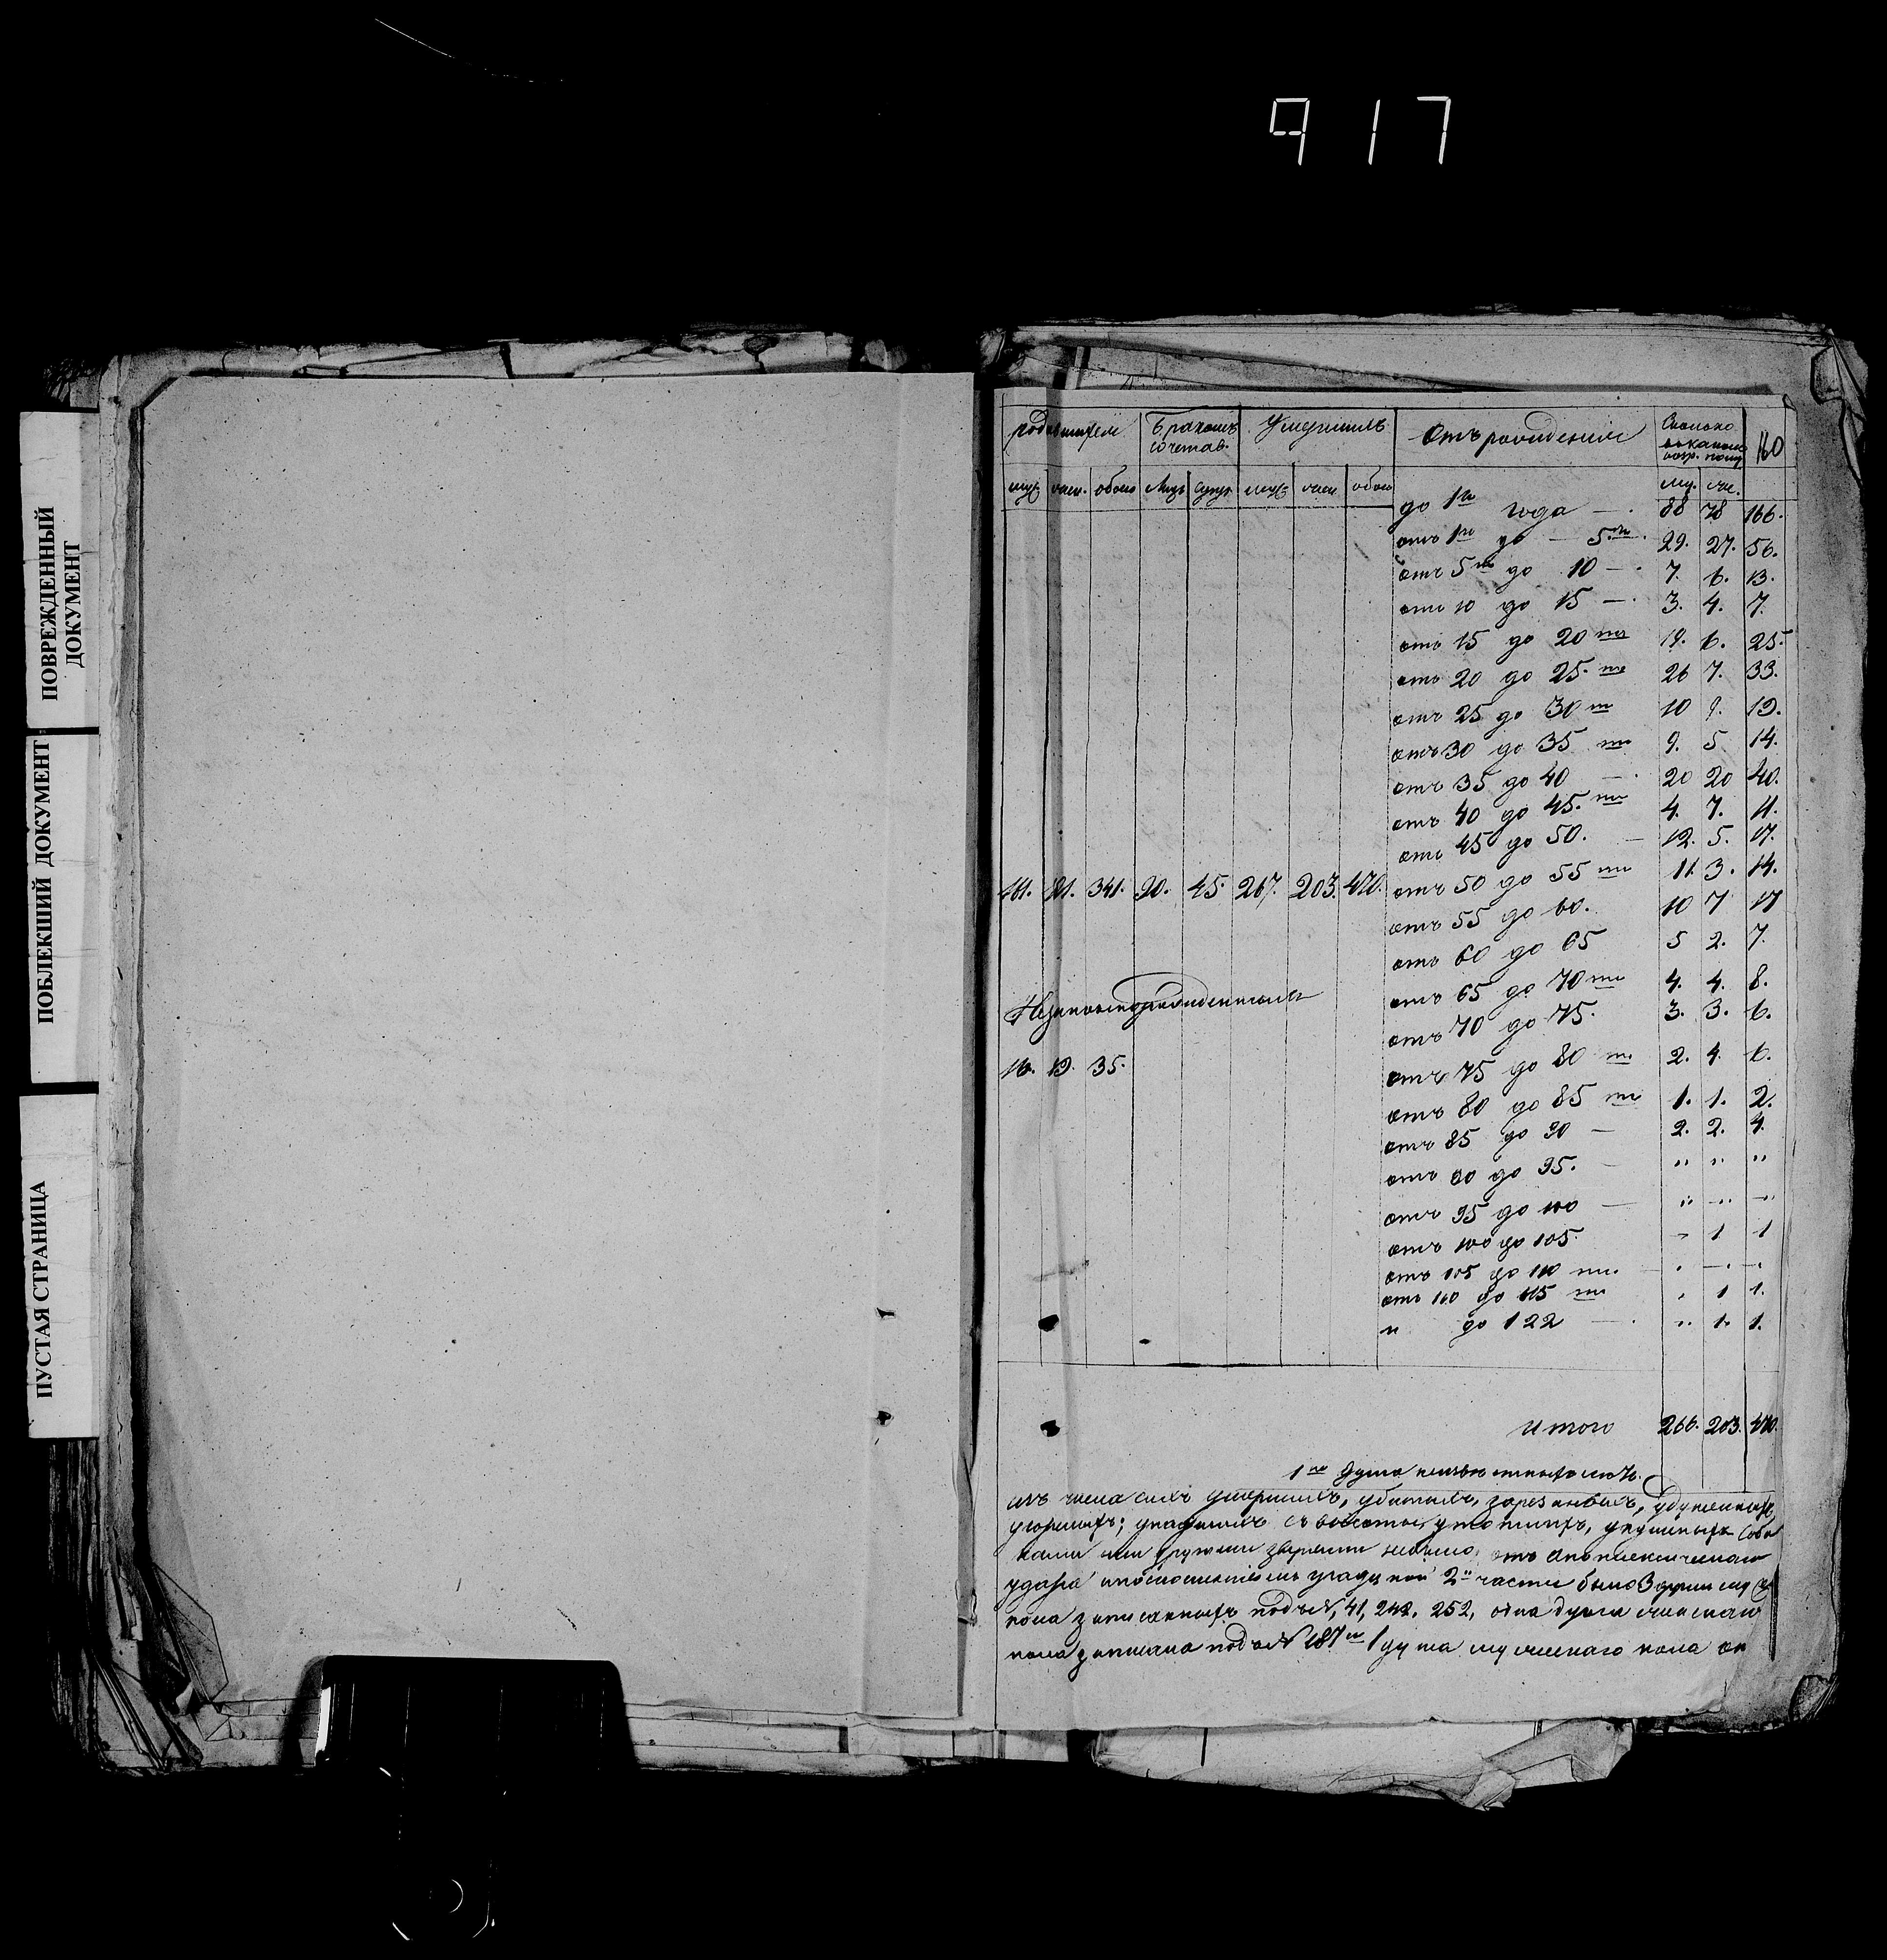 917
ПОВРЕЖДЕННЫЙ
ДОКУМЕНТ
ПОБЛЕКШИЙ ДОКУМЕНТ
ПУСТАЯ СТРАНИЦА
родившихся Бракомъ сочетав. Умершихъ Отъ рожденія Сколько 160
муж. жен. обоего Лицъ Супр. муж. жен. обоего му. же.
до 1го года — 88 78 166.
отъ 1го до — 5ти 29. 27. 56.
отъ 5ти до 10 — 7. 6. 13.
отъ 10 до 15 — 3. 4. 7.
отъ 15 до 20ти 19. 6. 25.
отъ 20 до 25.ти 26 7. 33.
отъ 25 до 30ти 10 9. 19.
отъ 30 до 35 ти 9. 5 14.
отъ 35 до 40 — 20 20 40.
отъ 40 до 45.ти 4. 7. 11.
отъ 45 до 50. — 12. 5. 17.
181. 341. 90. 45. 267. 203. 470. отъ 50 до 55 ти 11. 3. 14.
отъ 55 до 60. 10 7 17
отъ 60 до 65 5 2. 7.
отъ 65 до 70ти 4. 4. 8.
Незаконнорожденныхъ
отъ 70 до 75. 3. 3. 6.
16. 19. 35. отъ 75 до 80 ти 2. 4. 6.
отъ 80 до 85 ти 1. 1. 2.
отъ 85 до 90 — 2. 2. 4.
отъ 90 до 95. — " " "
отъ 95 до 100 — " " "
отъ 100 до 105. " 1 1
отъ 105 до 110 ти. " — "
отъ 110 до 115 ти " 1 1.
и до 122 — " 1. 1.
Итого 266. 203. 470.
1на душа неизвѣстныхъ лѣтъ.
изъ числа сихъ умершихъ, убитыхъ, зарезанныхъ, удушенныхъ,
угоршихъ; упавшихъ съ высоты, утопшихъ, укушеныхъ соба
ками или другими зверьми небыло, отъ апоплексическаго
удара 2й части было 3 души муж
пола записанныхъ подъ N, 41, 242. 252, одна душа женскаго
пола записана подъ N 187м 1 душа мужескаго пола